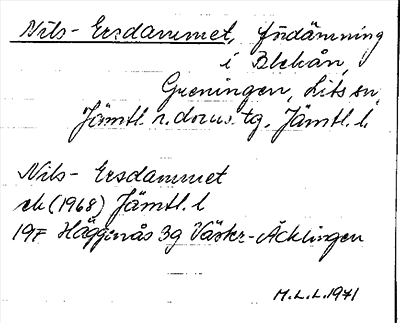 Nils-Ersdammet, fördämning
i Blekån,
Greningen, Lits sn,
Jämtl. n. doms. tg. Jämtl. l.
Nils-Ersdammet
ek (1968) Jämtl. l
19F Häggenås 3g Västr-Äcklingen
M.L.L. 1971